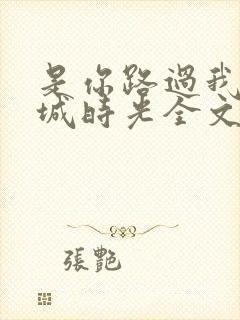 是你路過我
城時光全文
張艷